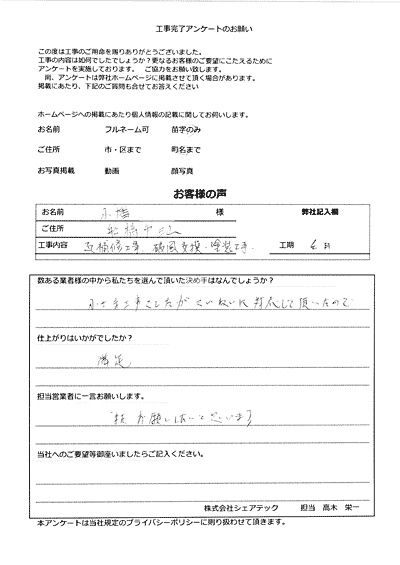 工事完了アンケートのお願い
この度は工事のご用命を賜りありがとうございました。
工事の内容は如何でしたでしょうか？更なるお客様のご要望にこたえるために
アンケートを実施しております。　ご協力をお願い致します。
尚、アンケートは弊社ホームページに掲載させて頂く場合があります。
掲載にあたり、下記のご質問も合せてお答えください
ホームページへの掲載にあたり個人情報の記載に関してお伺いします。
お名前　フルネーム可　苗字のみ
ご住所　市・区まで　町名まで
お写真掲載　動画　顔写真
お客様の声
お名前　様　弊社記入欄
ご住所　船橋市
工事内容　補修工事、破風交換・塗装工事　工期
数ある業者様の中から私たちを選んで頂いた決め手はなんでしょうか？
小さな工事でしたがていねいに対応して頂いたので
仕上がりはいかがでしたか？
満足
担当営業者に一言お願いします。
又お願いしたいと思います
当社へのご要望等御座いましたらご記入ください。
株式会社シェアテック　担当　高木　栄一
本アンケートは当社規定のプライバシーポリシーに則り扱わせて頂きます。